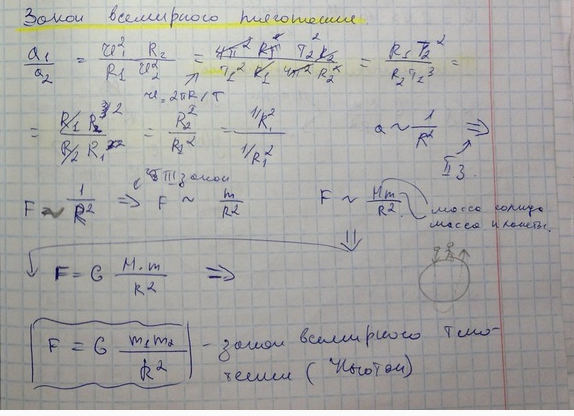 Закон всемирного тяготения.
a₁/a₂ = v₁² R₂ / R₁ v₂² = 4π² R₁² T₂² R₂ / T₁² R₁ 4π² R₂² = R₁ T₂² / R₂ T₁² =
v = 2πR/T
= R₁ R₂³ / R₂ R₁³ = R₂² / R₁² = 1/R₁² / 1/R₂² a ~ 1/R² ⇒
II З.
F ~ 1/R² ⇒ F ~ m/R² F ~ Mm/R²
III закон
масса солнца
масса планеты.
F = G M·m / R² ⇒
F = G m₁m₂ / R² - закон всемирного тяго-
тения (Ньютон)